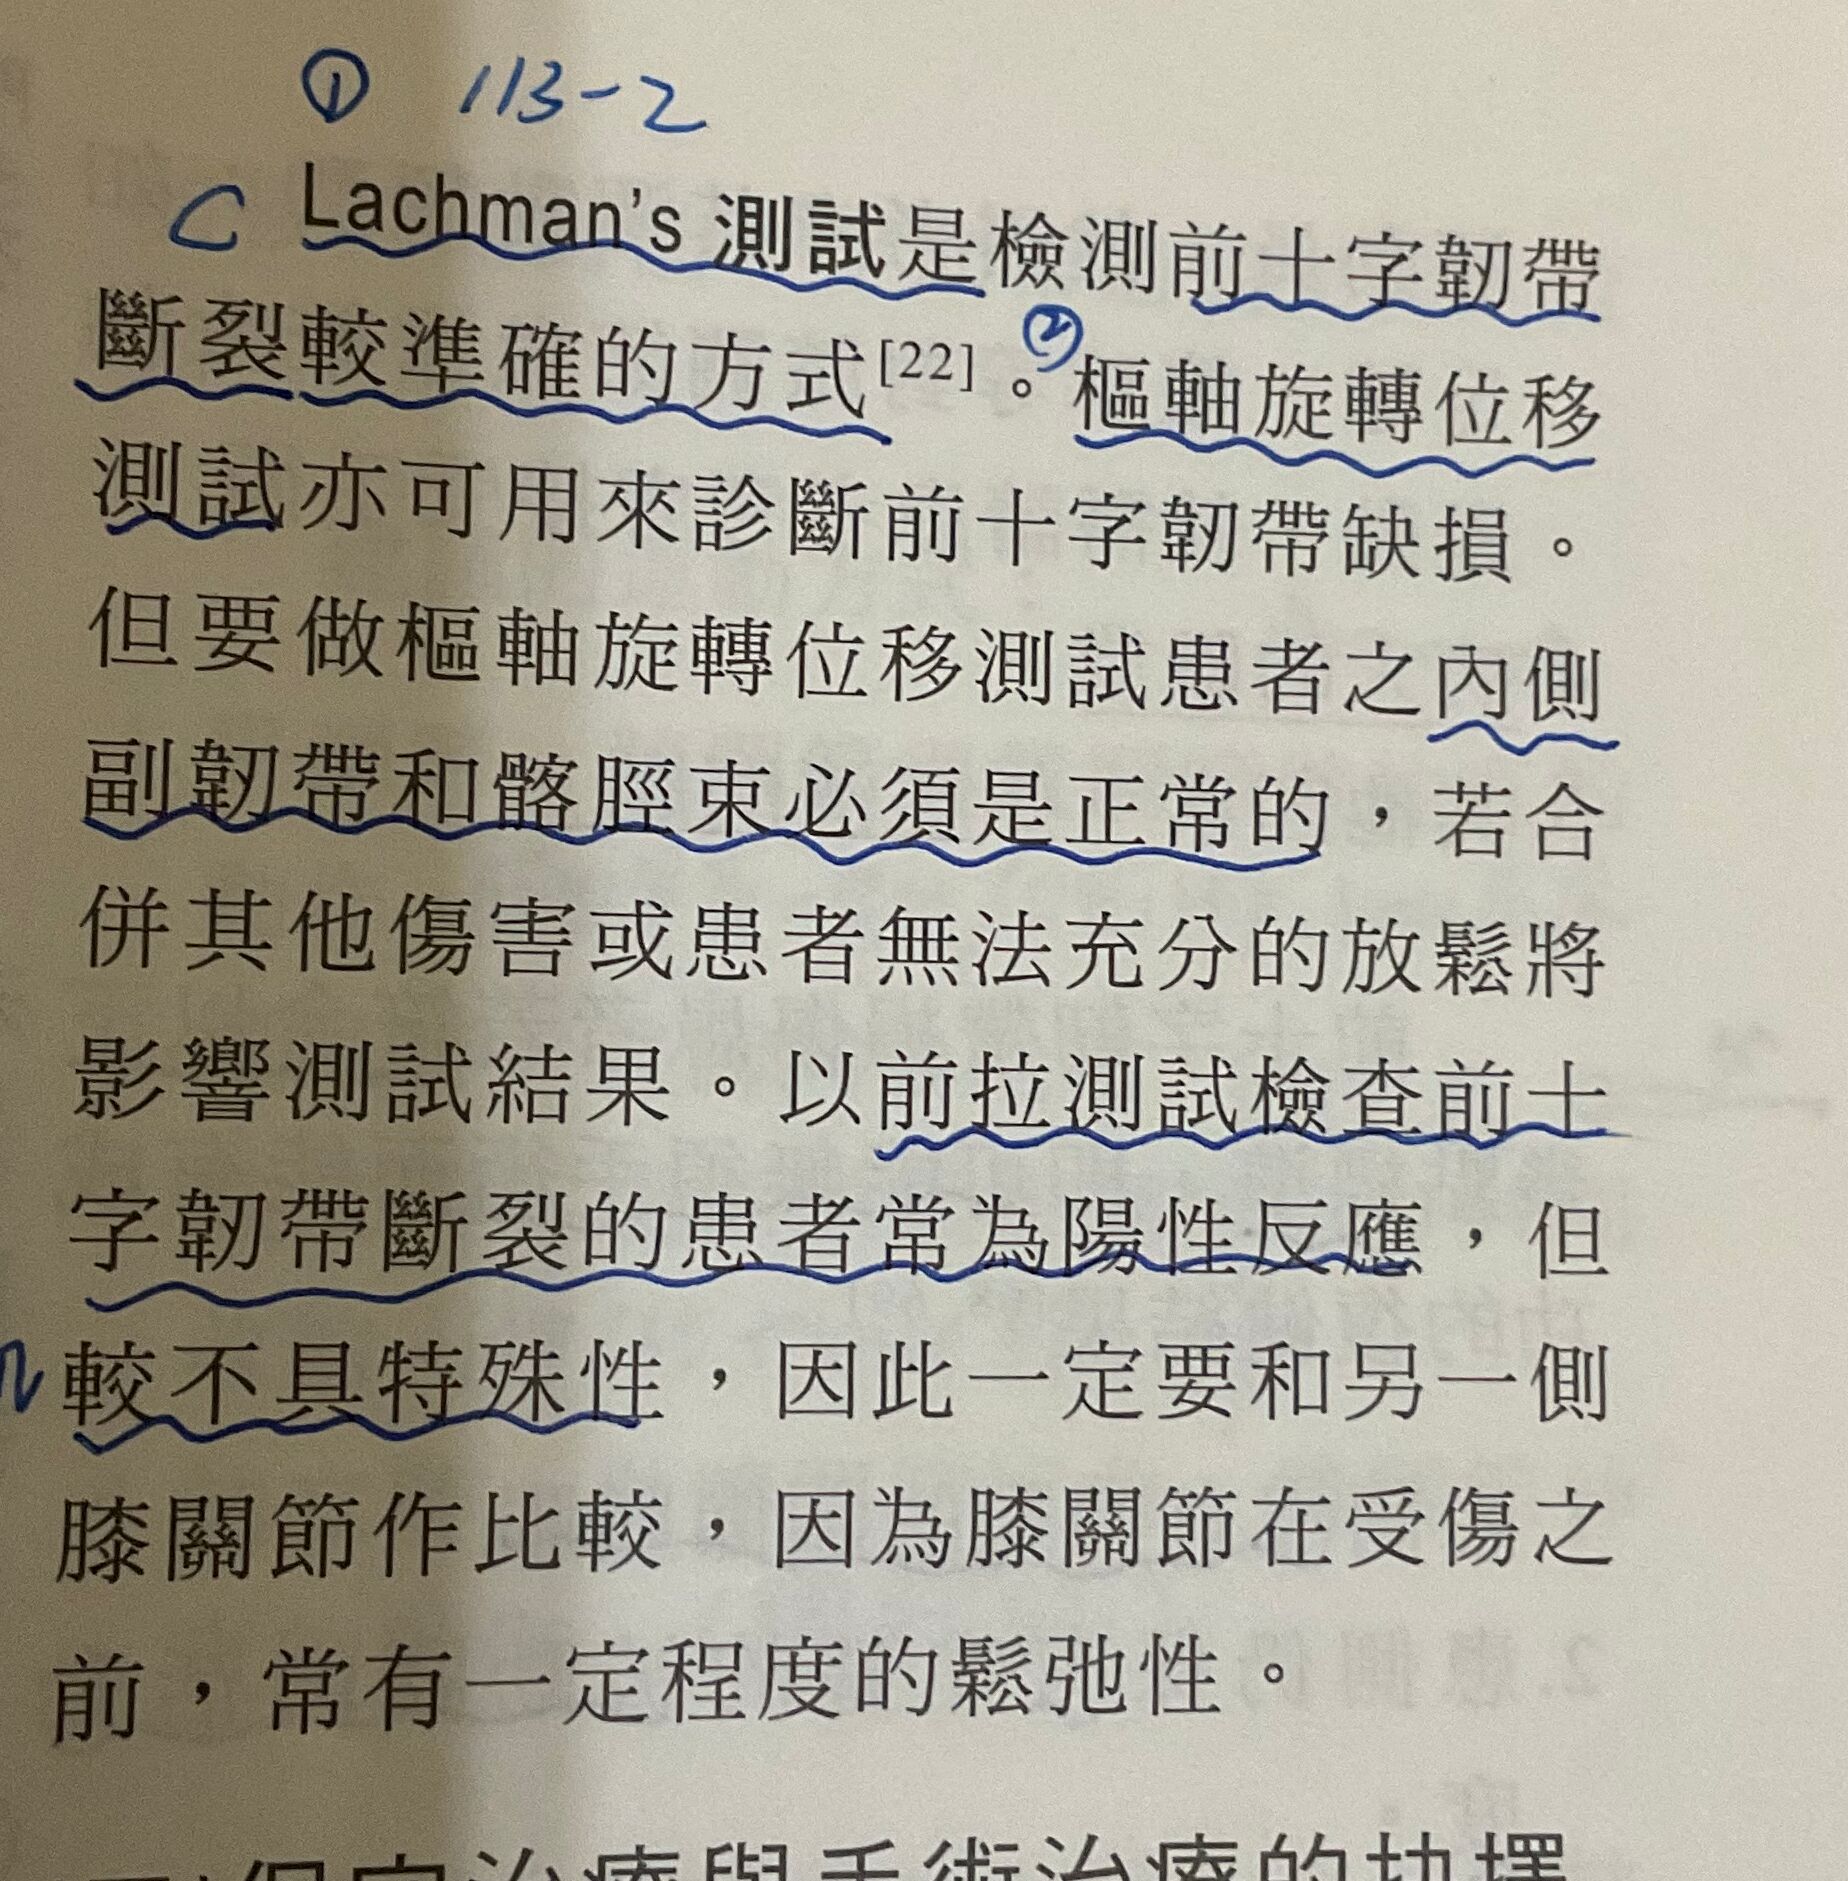 ① 113-2
C Lachman's 測試是檢測前十字韌帶
斷裂較準確的方式[22]。②樞軸旋轉位移
測試亦可用來診斷前十字韌帶缺損。
但要做樞軸旋轉位移測試患者之內側
副韌帶和髂脛束必須是正常的，若合
併其他傷害或患者無法充分的放鬆將
影響測試結果。以前拉測試檢查前十
字韌帶斷裂的患者常為陽性反應，但
較不具特殊性，因此一定要和另一側
膝關節作比較，因為膝關節在受傷之
前，常有一定程度的鬆弛性。
保守治療與手術治療的抉擇